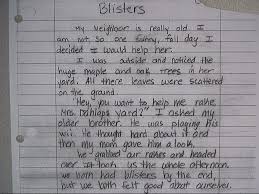 Blisters
My neighbor is really old I
am not so one sunny, fall day I
decided I would help her.
I was outside and noticed the
huge maple and oak trees in her
yard. All there leaves were scattered
on the ground.
"Hey, you want to help me rake
Mrs. Dunlaps yard?" I asked my
older brother. He was playing his
wii. He thought hard about it and
then my mom gave him a look.
We grabbed our rakes and headed
over. It took us the whole afternoon.
we both had blisters by the end,
but we both felt good about ourselves.